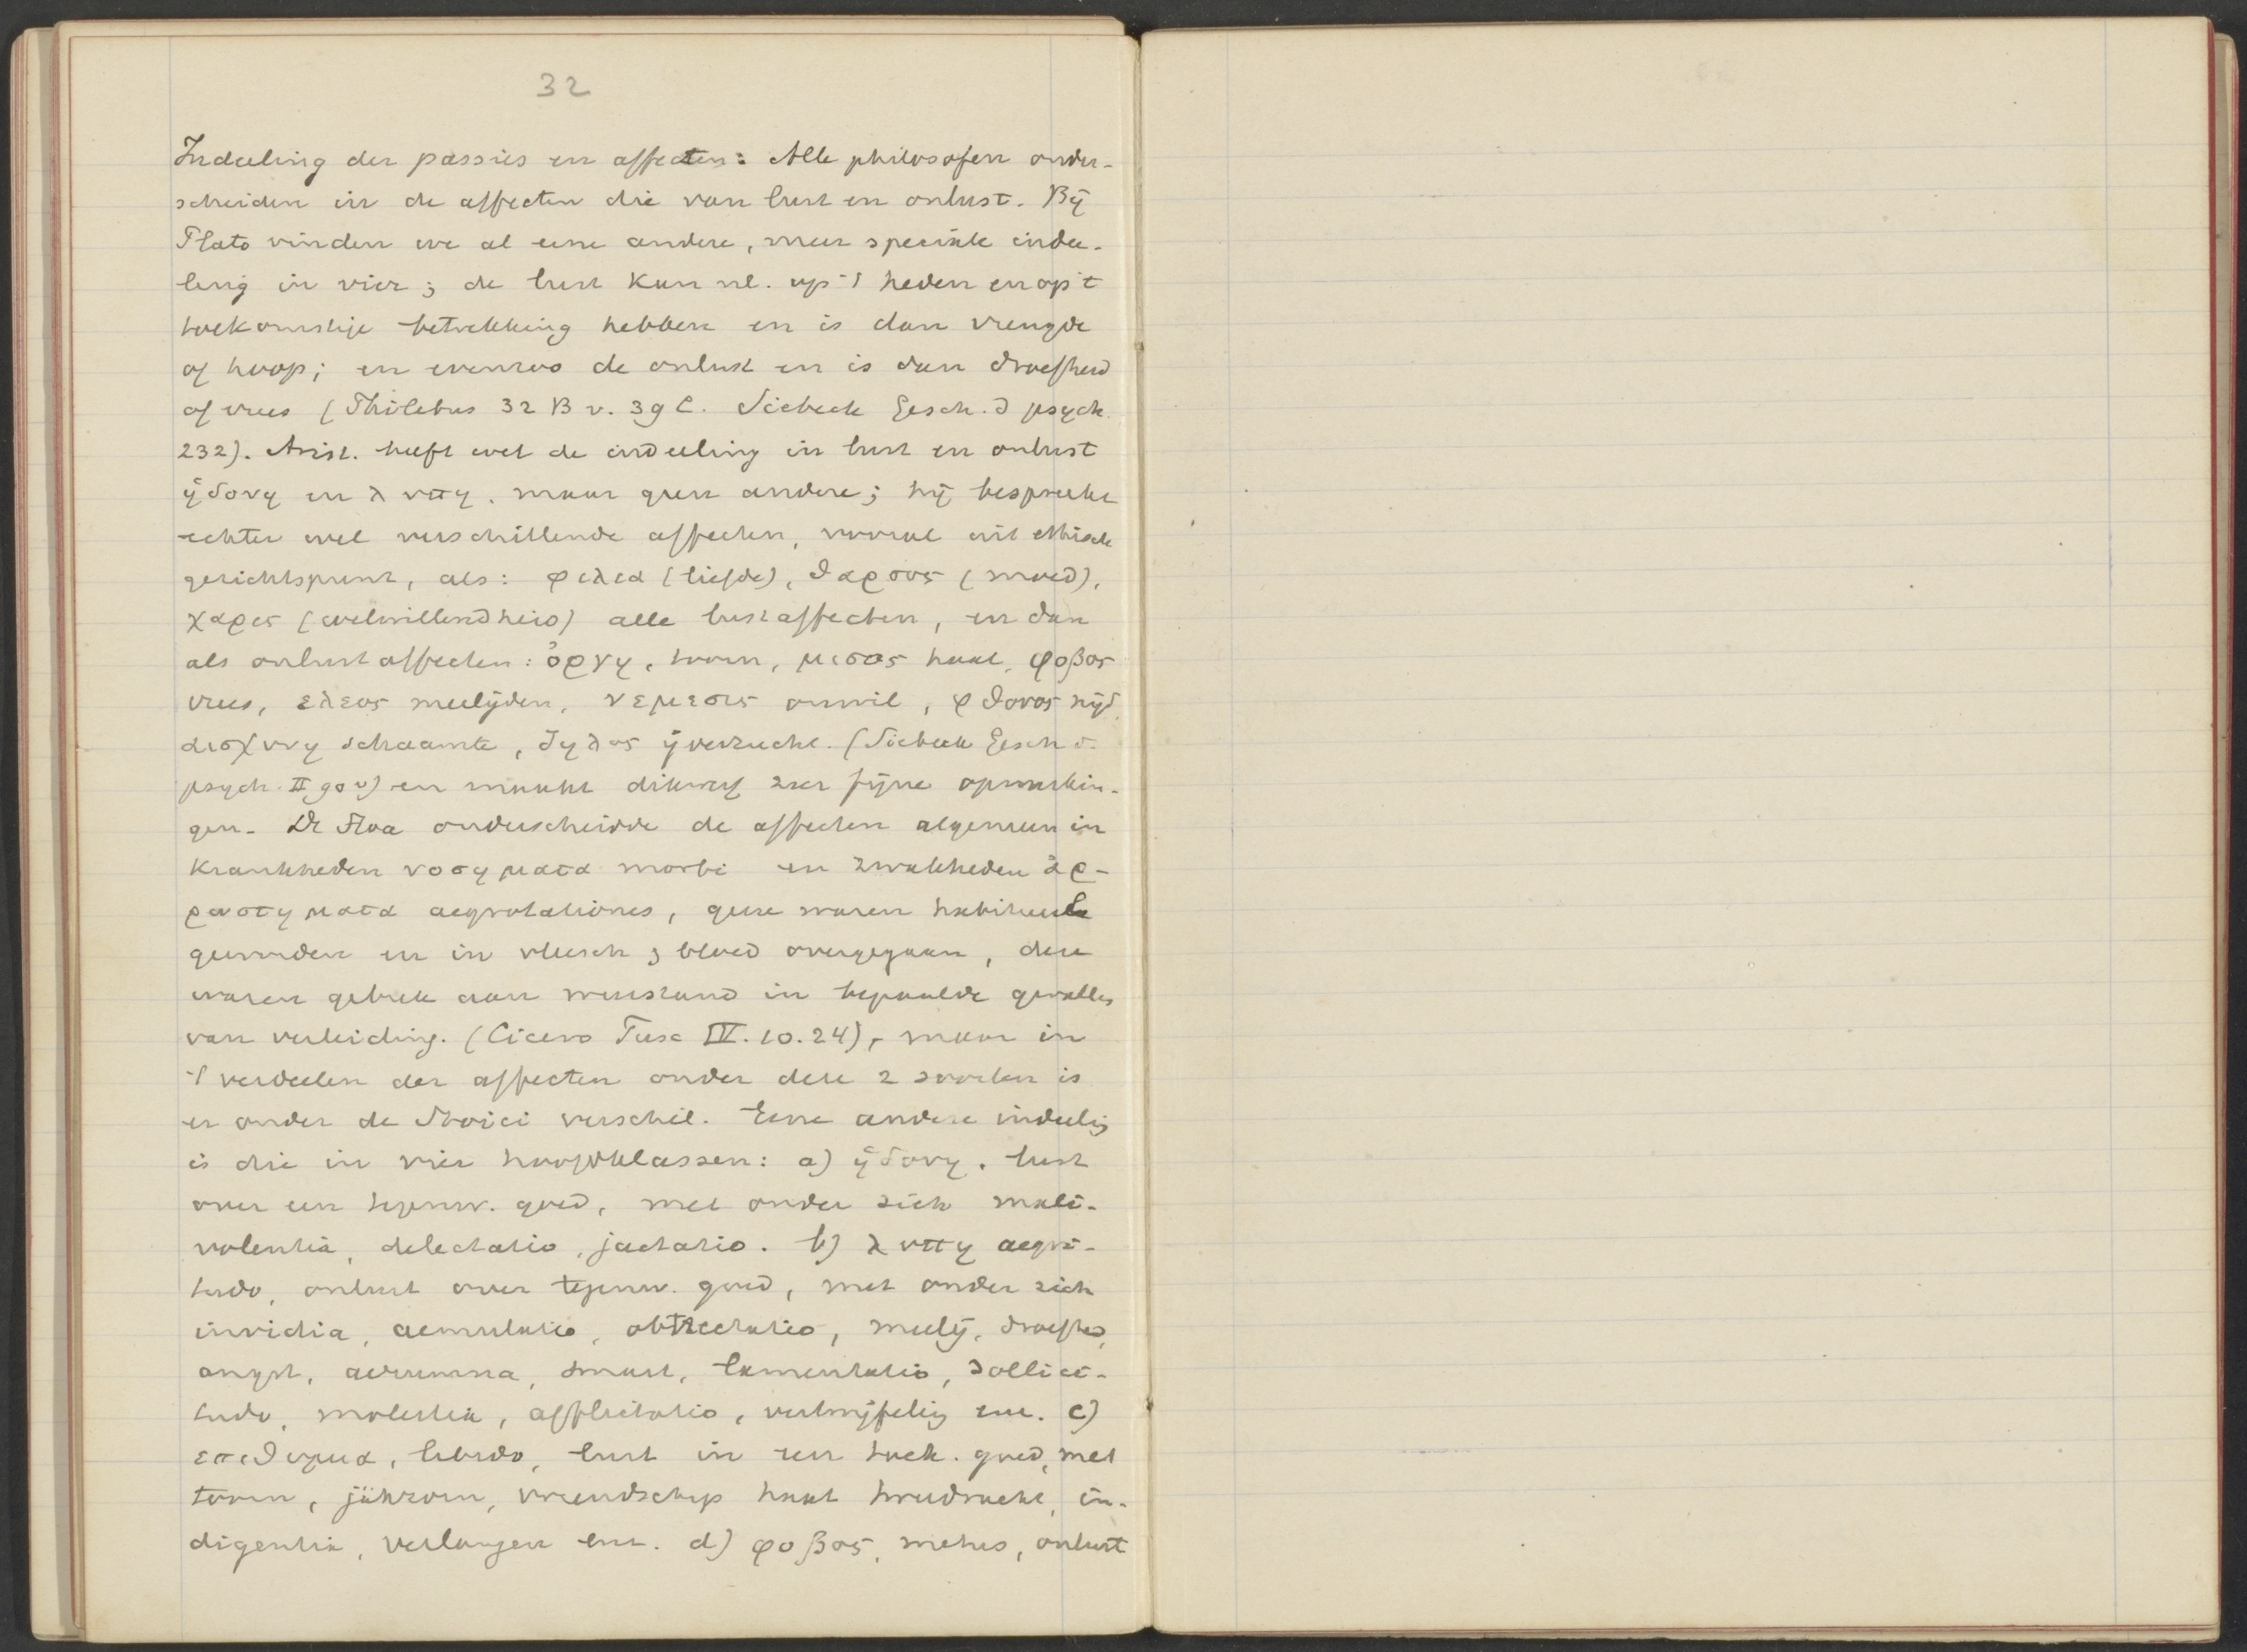 32
Indeeling der passies en affecten: Alle philosofen onder-
scheiden in de affecten die van lust en onlust. Bij
Plato vinden we al eene andere, meer speciale indee-
ling in vier; de lust kan nl. op 't heden en op 't
toekomstige betrekking hebben en is dan vreugde
of hoop; en evenzoo de onlust en is dan droefheid
of vrees (Philebus 32 B v. 39 C. Siebeck Gesch. d psych.
232). Arist. heeft wel de indeeling in lust en onlust
ἡδονη en λυπη, maar geen andere; hij bespreekt
echter wel verschillende affecten, vooral uit ethisch
gezichtspunt, als: φιλια (liefde), θαρσος (moed),
χαρις (welwillendheid) alle lustaffecten, en dan
als onlustaffecten: ὀργη, toorn, μισος haat, φοβος
vrees, ελεος meelijden, νεμεσις onwil, φθονος nijd,
αισχυνη schaamte, ζηλος ijverzucht. (Siebeck Gesch d.
psych. II 90 v) en maakt dikwerf zeer fijne opmerkin-
gen. De Stoa onderscheidde de affecten algemeen in
krankheden νοσηματα morbi en zwakheden ἀρ-
ρωστηματα aegrotationes, gene waren habitueele
geworden en in vleesch & bloed overgegaan, deze
waren gebrek aan weerstand in bepaalde gevallen
van verleiding. (Cicero Tusc IV. 10. 24), maar in
't verdeelen der affecten onder deze 2 soorten is
er onder de Stoici verschil. Eene andere indeelig
is die in vier hoofdklassen: a) ἡδονη, lust
over een tegenw. goed, met onder zich mali-
volentia, delectatio, jactatio. b) λυπη aegri-
tudo, onlust over tegenw. goed, met onder zich
invidia, aemulatio, obtrectatio, meelij, droefheid,
angst, aerumna, smart, lamentatio, sollici-
tudo, molestia, afflictatio, vertwijfelig enz. c)
επιθυμια, libido, lust in een toek. goed, met
toorn, jähzorn, vriendschap haat tweedracht, in-
digentia, verlangen enz. d) φοβος, metus, onlust